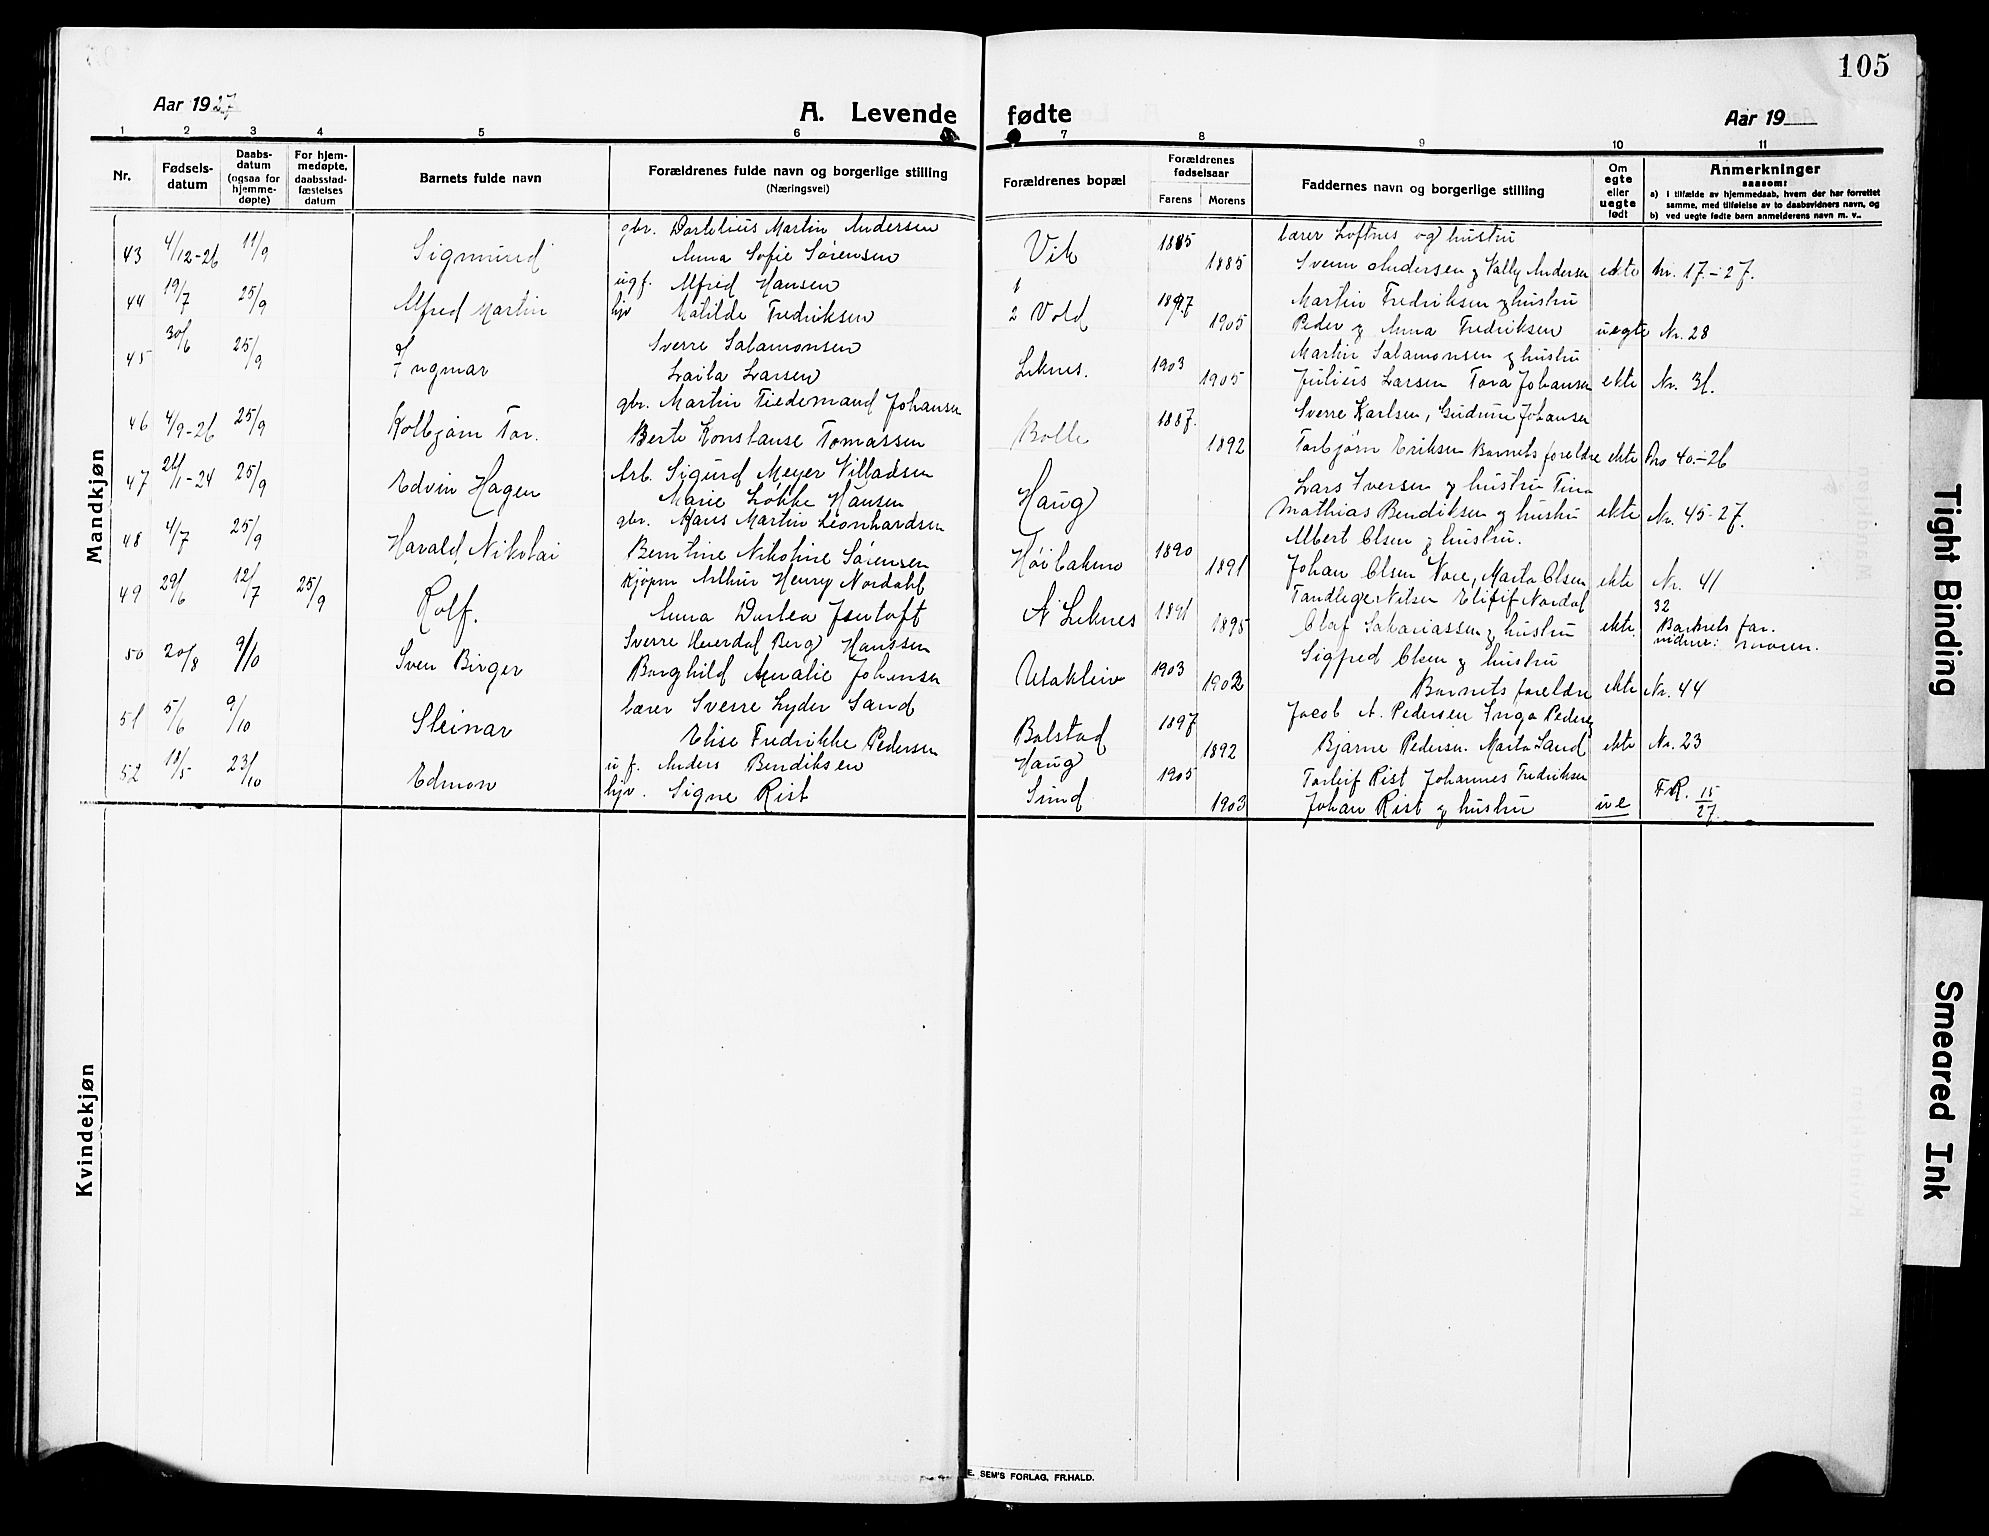 105
Aar 1927
A. Levende fødte
Aar 19
1 2 3 4 5 6 7 8 9 10 11
Nr.
Fødsels-datum
Daabs-datum (ogsaa for hjemme-døpte)
For hjem-medøpte, daabsstad-fæstelses datum
Barnets fulde navn
Forældrenes fulde navn og borgerlige stilling (Næringsvei)
Forældrenes bopæl
Forældrenes fødselsaar
Farens Morens
Faddernes navn og borgerlige stilling
Om egte eller uegte født
Anmerkninger saasom:
a) i tilfælde av hjemmedaab, hvem der har forrettet samme, med tilføielse av to daabsvidners navn, og
b) ved uegte fødte barn anmelderens navn m. v..
Mandkjøn
gbr. Dortelius Martin Andersen lærer Loftnes og hustru
43 4/12-26 11/9 Sigmund Anna Sofie Sørensen Vik 1885 1885 Svenn Andersen og Vally Andersen ekte Nr. 17.-27.
ugf. Alfred Hansen 1 Martin Fredriksen og hustru
44 19/7 25/9 Alfred Martin hjv Matilde Fredriksen 2 Vold 1897 1905 Peder og Anna Fredriksen uegte Nr. 28
Sverre Salamonsen Martin Salamonsen og hustru
45 30/6 25/9 Ingmar Laila Larsen Leknes. 1903 1905 Julius Larsen Tora Johansen ekte Nr. 31.
gbr. Martin Tiedemand Johansen Sverre Karlsen, Gudrun Johansen
46 4/9-26 25/9 Kolbjørn Tor. Berte Konstanse Tomassen Bolle 1887. 1892 Torbjørn Eriksen Barnets foreldre ekte No 40.-26
47 25/9 Edvin Hagen Arb. Sigurd Meyer Villadsen Lars Iversen og hustru Tina
Marie Løkke Hansen Haug Mathias Bendiksen og hustru ekte Nr. 45-27.
gbr. Hans Martin Leonhardsen Albert Olsen og hustru.
48 4/7 25/9 Harald Nikolai Berntine Nikoline Sørensen 1890 1891 Johan Olsen Vore, Marta Olsen ekte Nr. 41
Kjøpm Arthur Henry Nordahl Tandlege Nilsen Nordal
49 29/6 12/7 25/9 Rolf. Anna Dortea Jentoft N Leknes 1891 1895 Olaf Sakariassen og hustru ekte. 32 Barnets far. vidner: moren.
Sverre Heierdal Berg Hanssen Sigfred Olsen og hustru
50 20/8 9/10 Sven Birger Borghild Amalie Johansen Utakleiv 1903 1902 Barnets foreldre ekte Nr. 44
lærer Sverre Lyder Sand Jacob A. Pedersen Inga Pedersen
51 5/6 9/10 Steinar Elise Fredrikke Pedersen Bolstad 1897 1892 Bjarne Pedersen. Marta Sand ekte Nr. 23
u. f. Anders Bendiksen Haug Torleif Rist Johannes Fredriksen
52 18/5 23/10 Edmon hjv. Signe Rist Sund 1905 1903 Johan Rist og hustru ue F.R. 15/27.
Kvindekjøn
E. SEM'S FORLAG, FR.HALD.
Tight Binding
Smeared Ink